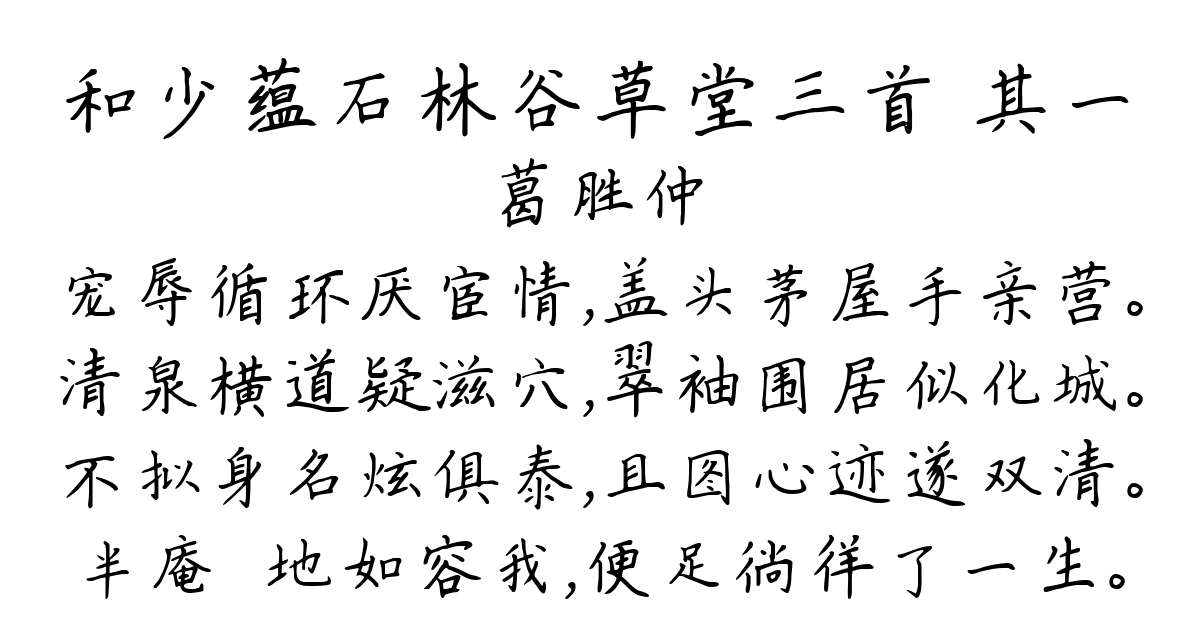 和少蕴石林谷草堂三首 其一
葛胜仲
宠辱循环厌宦情,盖头茅屋手亲营。
清泉横道疑滋穴,翠袖围居似化城。
不拟身名炫俱泰,且图心迹遂双清。
半庵 地如容我,便足徜徉了一生。